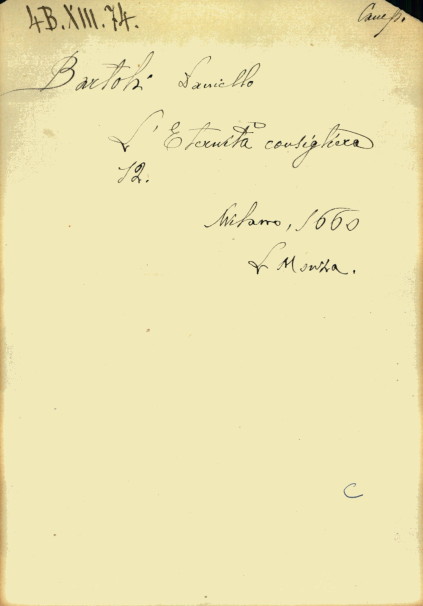 4B.XIII.74.
Bartoli Daniello
L'Eternità consigliera
12.
Milano, 1660
L Monza.
C